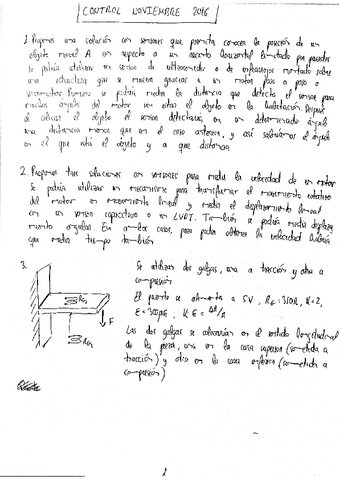 CONTROL NOVIEMBRE 2016
1. Proponer una solución con sensores que permita conocer la posición de un
objeto móvil A con respecto a un recinto horizontal limitado por paredes
Se podría utilizar un sensor de ultrasonidos o de infrarrojos montado sobre
una estructura que se mueva gracias a un motor paso a paso o
servomotor. Primero se podría medir la distancia que detecta el sensor para
ángulo del motor sin estar el objeto en la habitación, después
al colocar el objeto el sensor detectaría en un determinado ángulo
una distancia menor que en el caso anterior, y así sabríamos el ángulo
en el que está el objeto y a que distancia.
2. Proponer tres soluciones con sensores para medir la velocidad de un motor
Se podría utilizar un mecanismo para transformar el movimiento rotativo
del motor en movimiento lineal y medir el desplazamiento lineal
con un sensor capacitivo o un LVDT. También se podría medir
angular. En ambos casos, para poder obtener la velocidad habría
que medir tiempo también
3.
Se utilizan dos galgas, una a tracción y otra a
compresión
El puente se alimenta a 5V, K=2,
Las dos galgas se colocarían en el sentido longitudinal
de la pieza, una en la cara superior (sometida a
tracción) y otra en la cara inferior (sometida a
compresión)
F
1